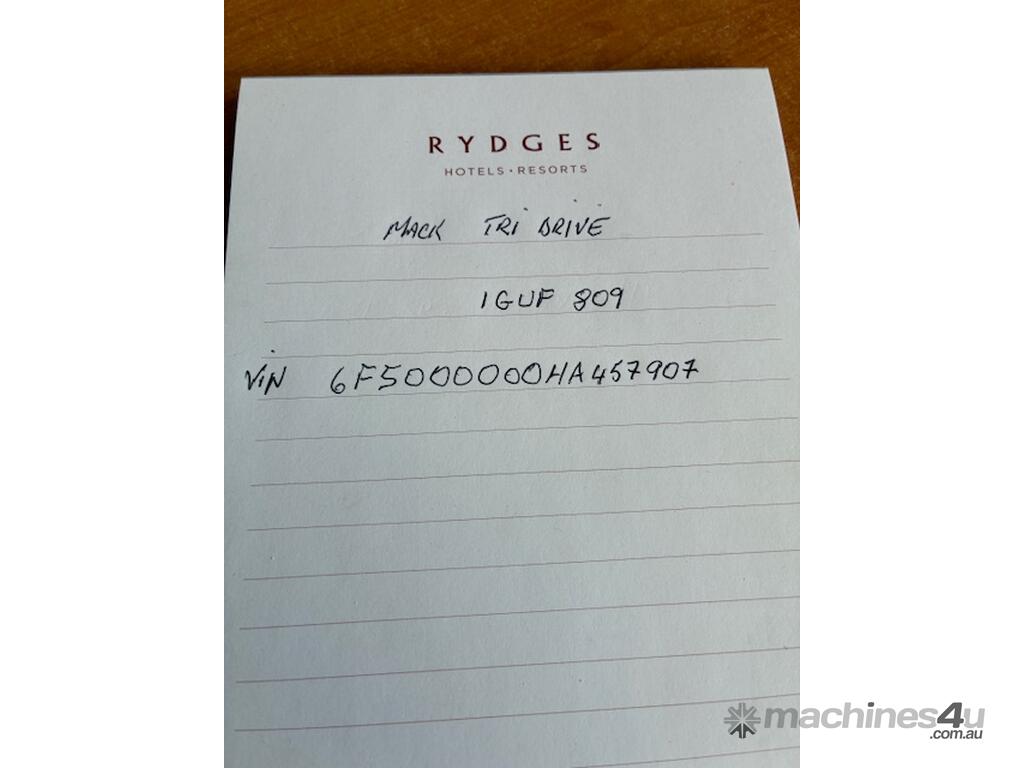 RYDGES
HOTELS · RESORTS
MACK TRI DRIVE
1GUF 809
VIN 6F5000000HA457907
machines4u
.com.au